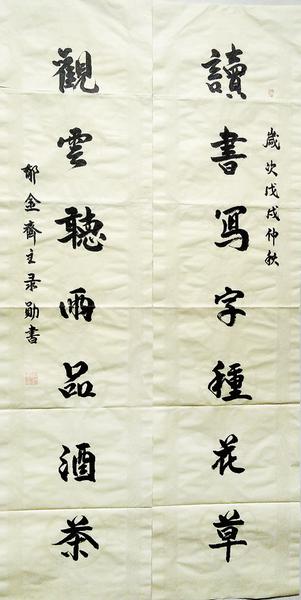 讀書写字種花草
歲次戊戌仲秋
觀雲聽雨品酒茶
郁金齋主录勋書